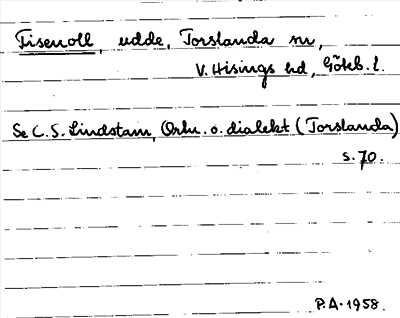 Fisenoll, udde, Torslanda sn,
V. Hisings hd, Göteb. l.
Se C. S. Lindstam, Ortn. o. dialekt (Torslanda)
s. 70.
P.A. 1958.